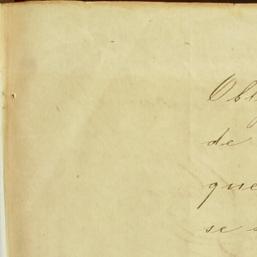 Obl
de
que
se